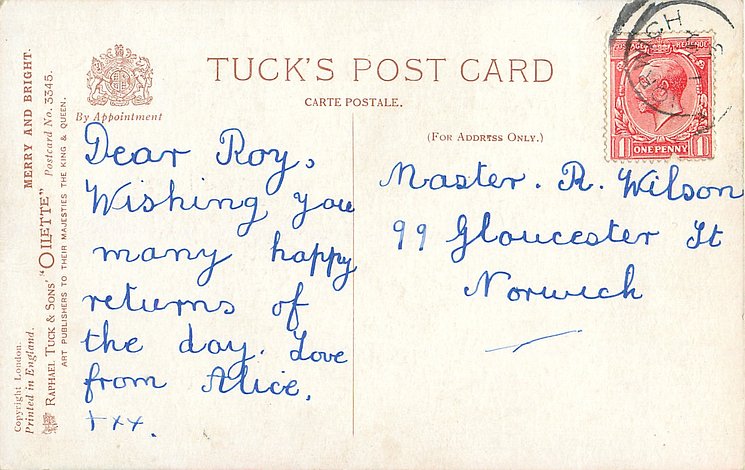 TUCK'S POST CARD
CARTE POSTALE.
By Appointment
(FOR ADDRESS ONLY.)
POSTAGE REVENUE
1 ONE PENNY 1
Dear Roy,
Wishing you
many happy
returns of
the day. Love
from Alice.
+xx.
Master. R. Wilson
99 Gloucester St
Norwich
MERRY AND BRIGHT.
"OILETTE" Postcard No. 3345.
RAPHAEL TUCK & SONS'
ART PUBLISHERS TO THEIR MAJESTIES THE KING & QUEEN.
Copyright London.
Printed in England.